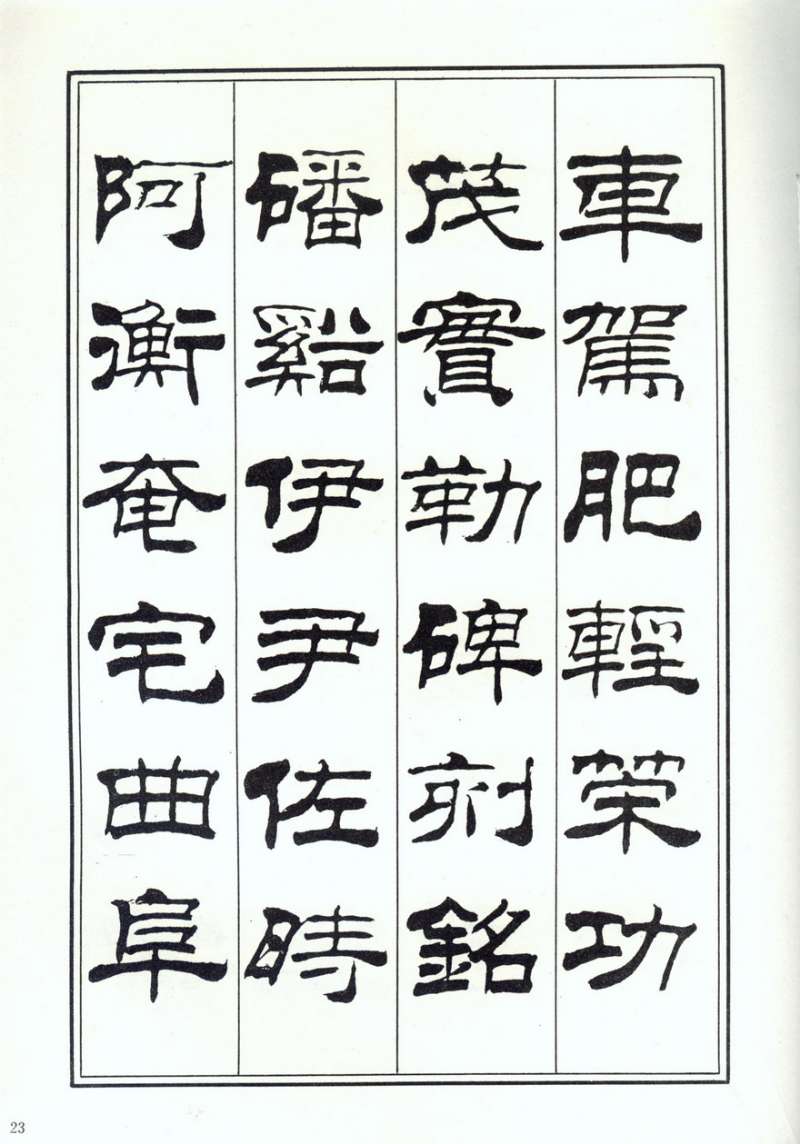 車駕肥輕榮功
茂實勒碑刻銘
磻谿伊尹佐時
阿衡奄宅曲阜
23